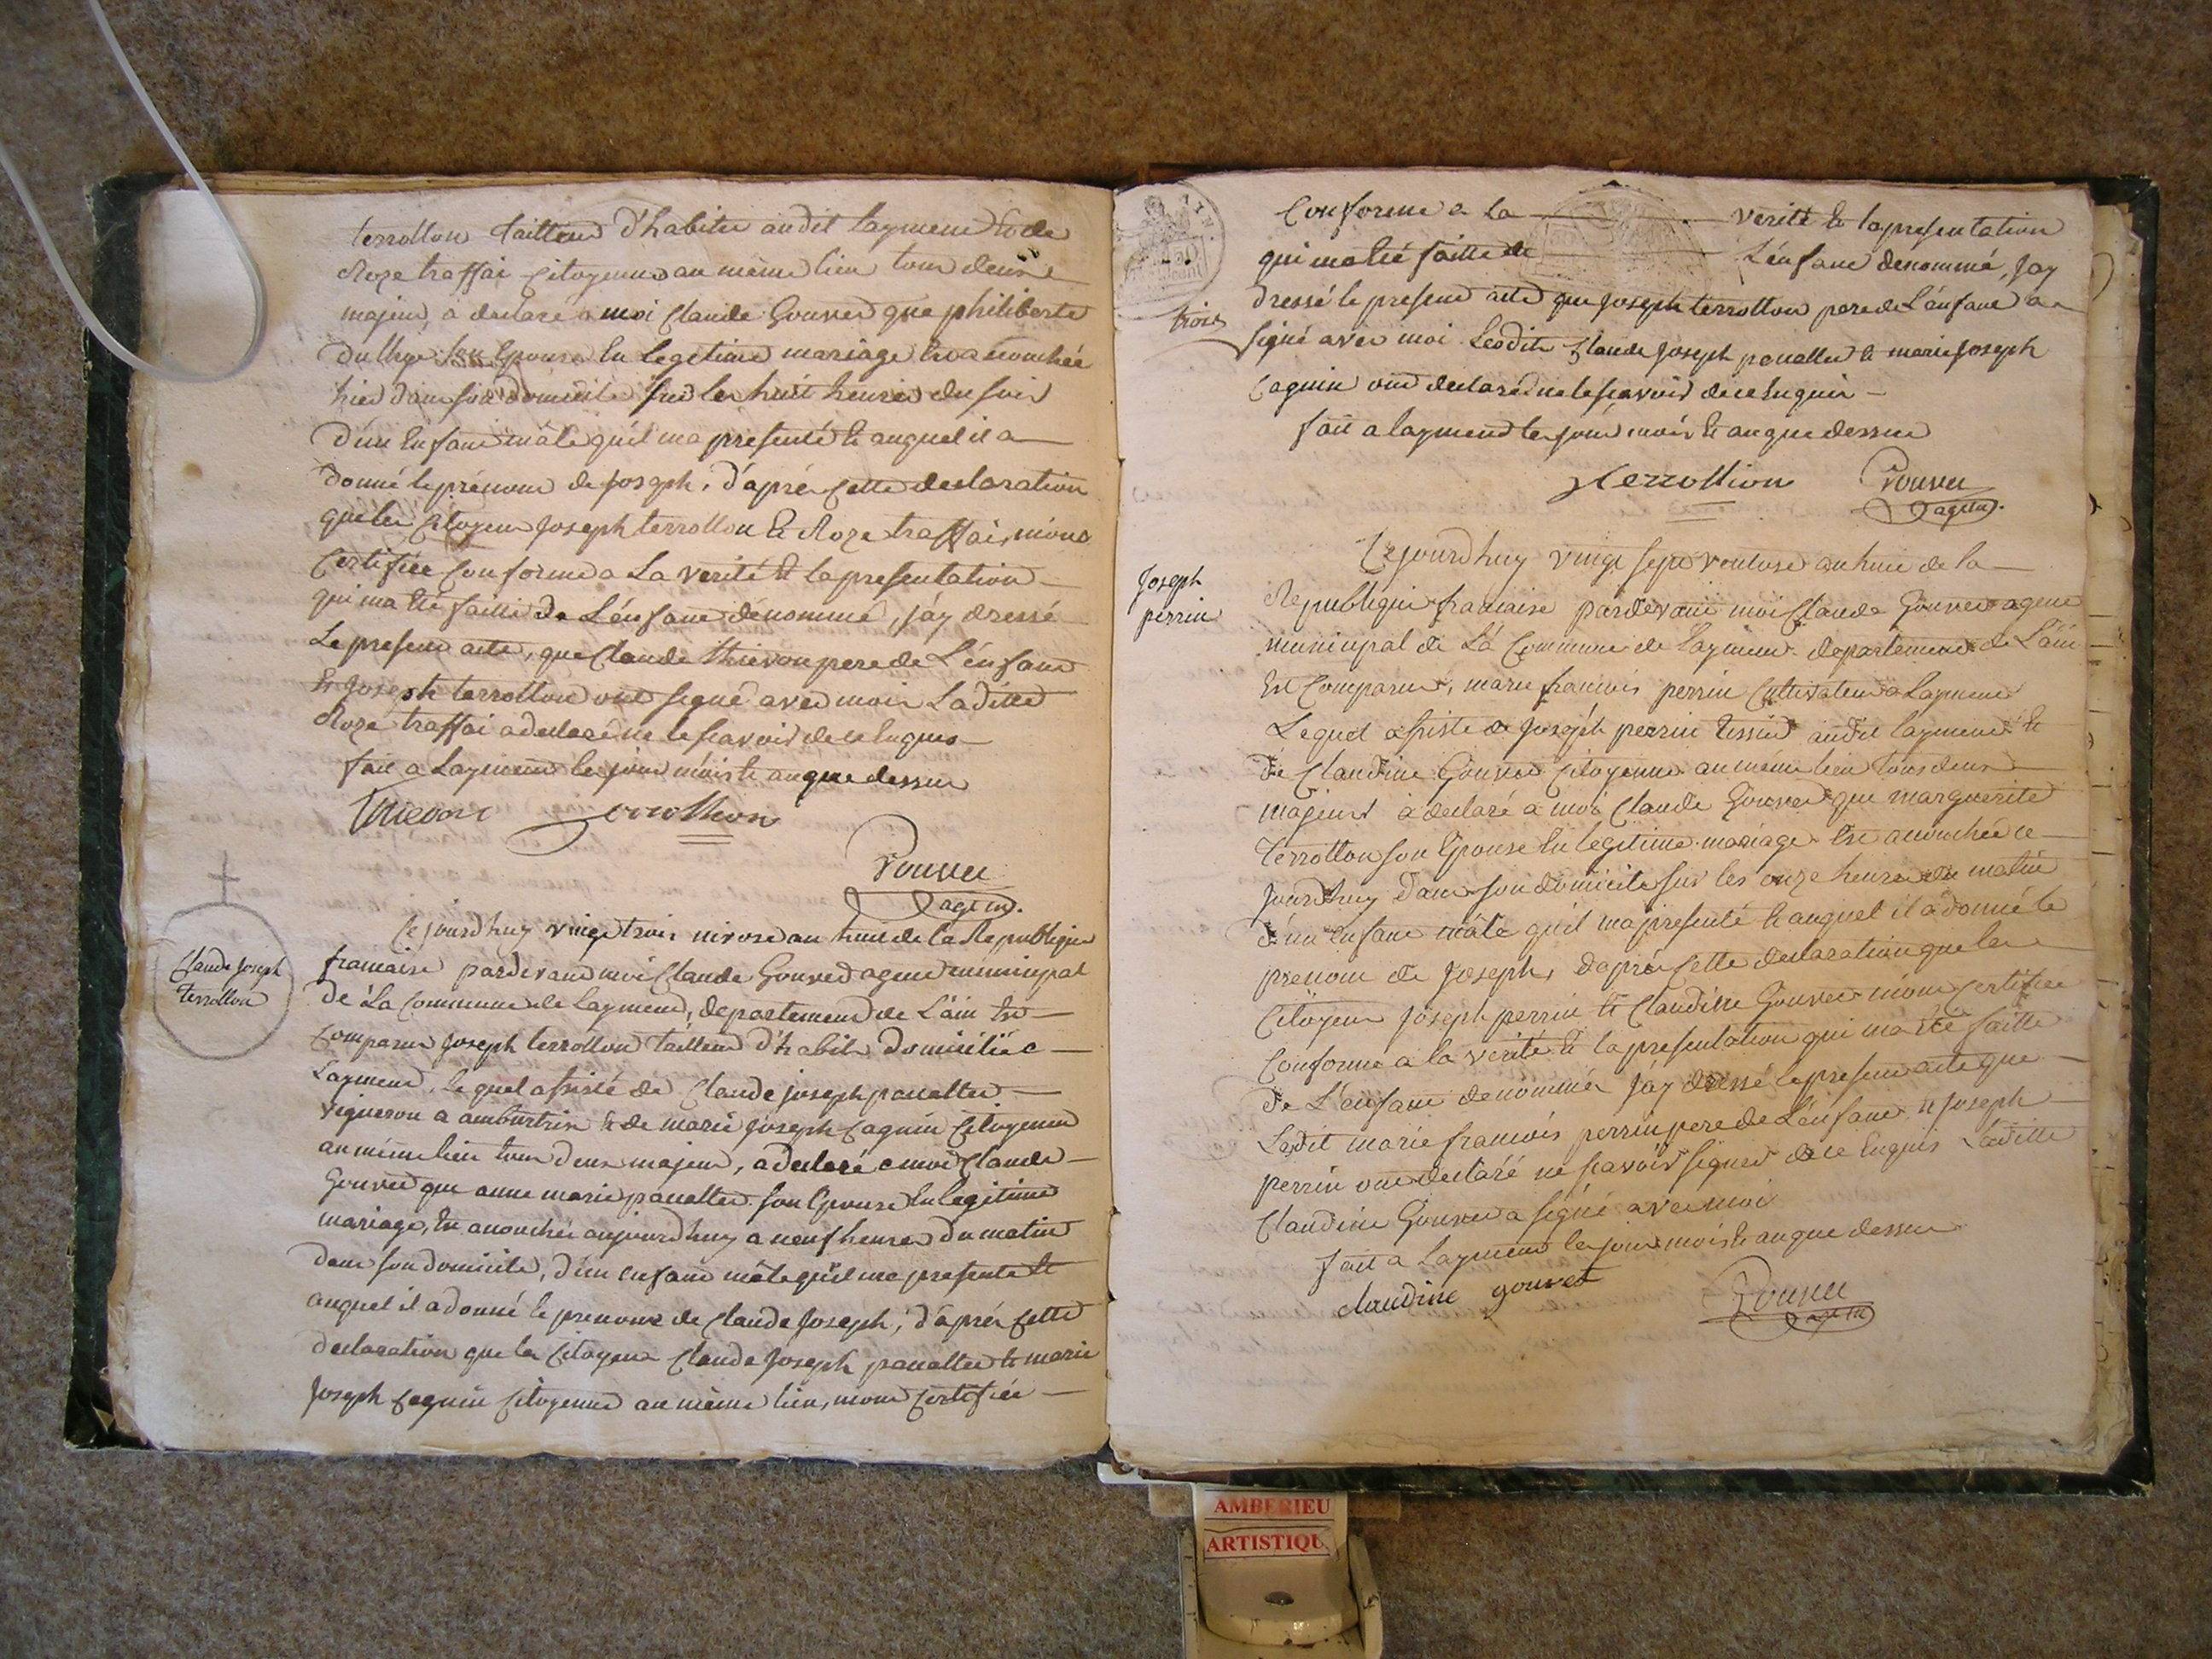 terrollon tailleur d'habits audit laymend et de
Roze traffai Citoyenne au même lieu tous deux
majeurs, a declaré a moi Claude Gouvet que philiberte
son Epouse En legitime mariage Est accouchée
hier dans son domicile sur les huit heures du soir
d'un Enfant mâle qu'il ma presenté et auquel il a
donné le prénom de Joseph, d'après cette declaration
que les Citoyens Joseph terrollon et Roze traffai, m'ont
Certifiée Conforme a La verité et la presentation
qui ma Eté faitte de L'enfant dénommé, j'ay dressé
Le present acte, que Claude thievon pere de L'enfant
et Joseph terrollon ont signé avec moi, Laditte
Roze traffai a declaré ne le sçavoir de ce Enquis
fait a Laymend les jour mois et an que dessus
Thievon terrollion
Gouvet
agent.
Claude Joseph
terrollon
Cejourd'huy vingt trois nivose an huit de la Republique
francaise pardevant moi Claude Gouvet agent municipal
de La Commune de Laymend, departement de L'ain Est
Comparu Joseph terrollon tailleur d'habits domicilié a
Laymend, lequel assisté de Claude joseph panallet
vigneron a ambutrix et de marie joseph Caguin Citoyenne
au même lieu tous deux majeurs, a declaré a moi Claude
Gouvet que anne marie panallet son Epouse En legitime
mariage, Est accouchée aujourd'huy a neuf heures du matin
dans son domicile, d'un enfant mâle qu'il ma presenté et
auquel il a donné le prenom de Claude Joseph, d'après cette
declaration que les Citoyens Claude Joseph panallet et marie
Joseph Caguin Citoyenne au même lieu, m'ont Certifiée
trois
Conforme a La verité et la presentation
qui ma Eté faitte de L'enfant denommé, j'ay
dressé le present acte que Joseph terrollon pere de L'enfant a
signé avec moi Lesdits Claude Joseph panallet et marie Joseph
Caguin ont declaré ne le sçavoir de ce Enquis
fait a laymend les jour mois et an que dessus
terrollion Gouvet
agent.
Joseph
perrin
Cejourd'huy vingt sept ventose an huit de la
Republique francaise pardevant moi Claude Gouvet agent
municipal de La Commune de laymend departement de L'ain
Est Comparu, marie francois perrin Cultivateur a Laymend
Lequel assisté de Joseph perrin tissier audit laymend et
de Claudine Gouvet Citoyenne au même lieu tous deux
majeurs a declaré a moi Claude Gouvet que marguerite
Terrollon son Epouse En legitime mariage Est accouchée ce
jourd'huy dans son domicile sur les onze heures du matin
d'un enfant mâle qu'il ma presenté et auquel il a donné le
prenom de Joseph, d'après cette declaration que les
Citoyens Joseph perrin et Claudine Gouvet m'ont certifiée
Conforme a la verité et la presentation qui ma Eté faitte
de L'enfant denommé j'ay dressé le present acte que
Ledit marie francois perrin pere de L'enfant et Joseph
perrin ont declaré ne sçavoir signer de ce Enquis Laditte
Claudine Gouvet a signé avec moi
fait a Laymend les jour mois et an que dessus
claudine gouvet Gouvet
agent
AMBERIEU
ARTISTIQU